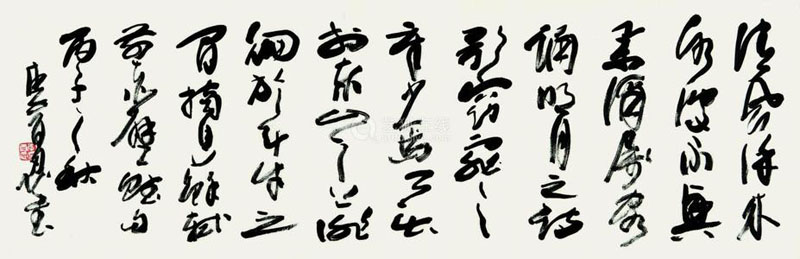 清風徐來
水波不興
舉酒屬客
誦明月之詩
歌窈窕之
章少焉月出
於東山之上徘
徊於斗牛之
間摘自蘇軾
前赤壁賦句
丙子之秋